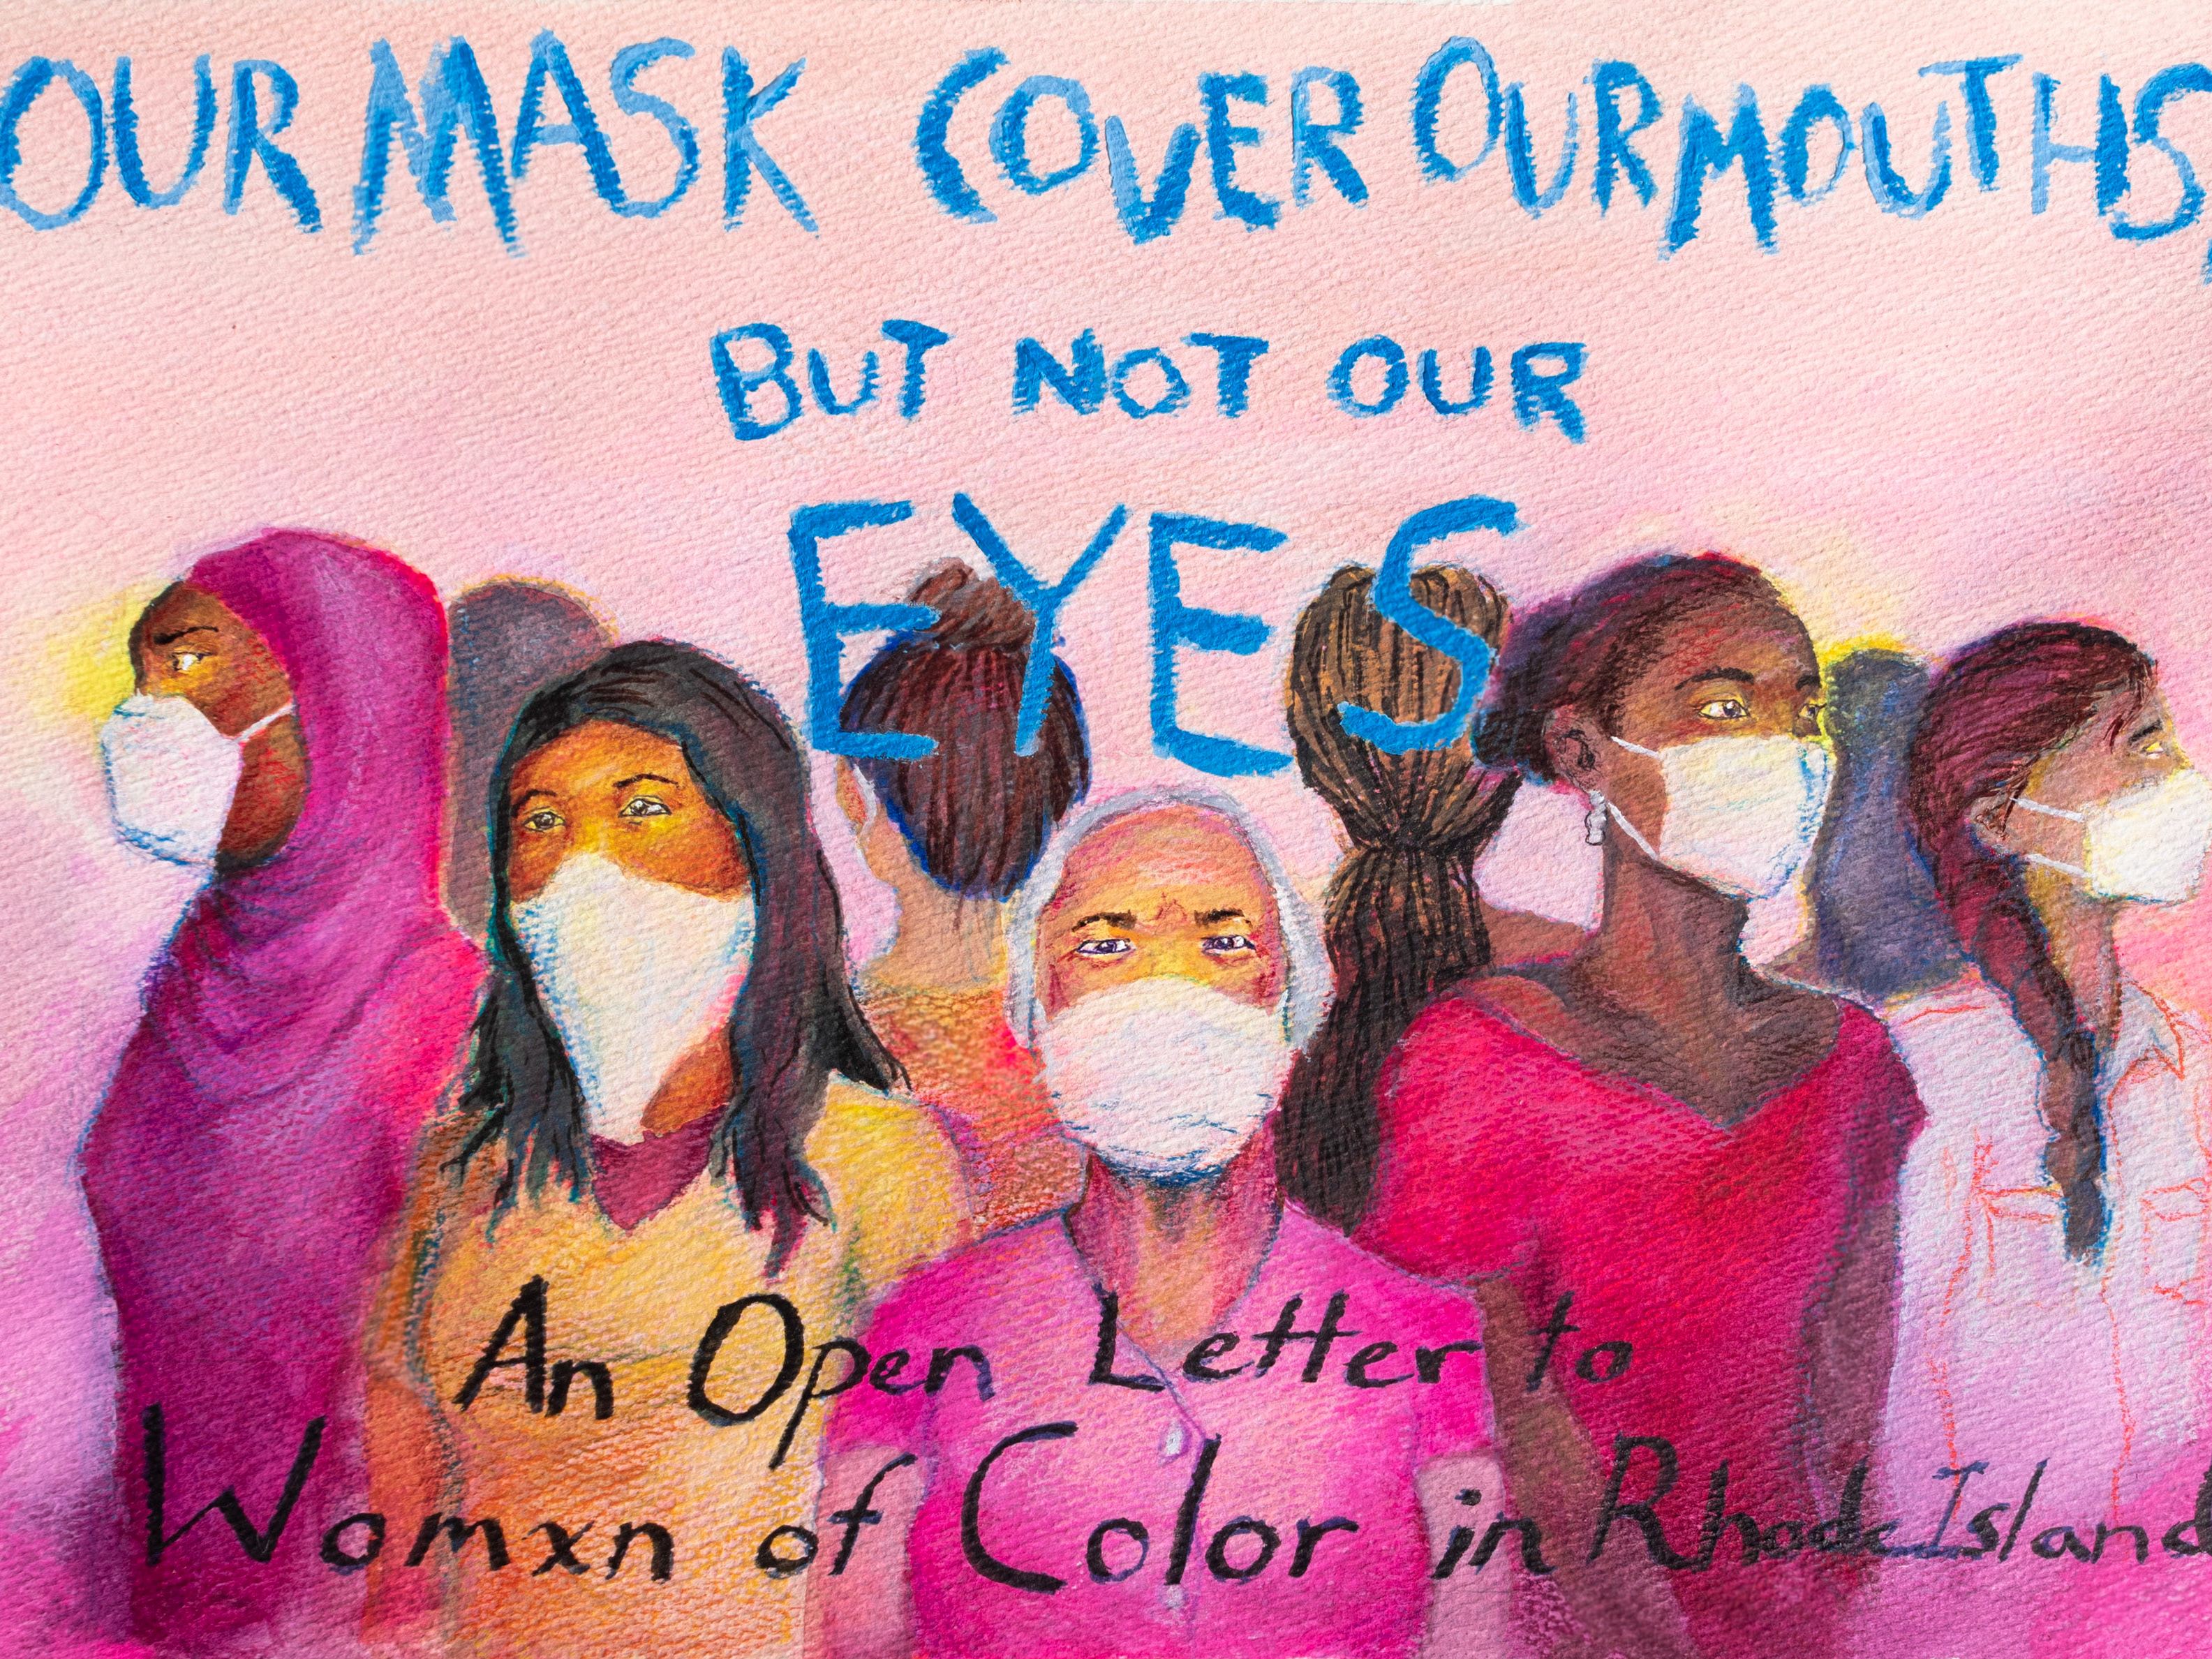 OUR MASK COVER OUR MOUTHS,
BUT NOT OUR
EYES
An Open Letter to
Womxn of Color in Rhode Island